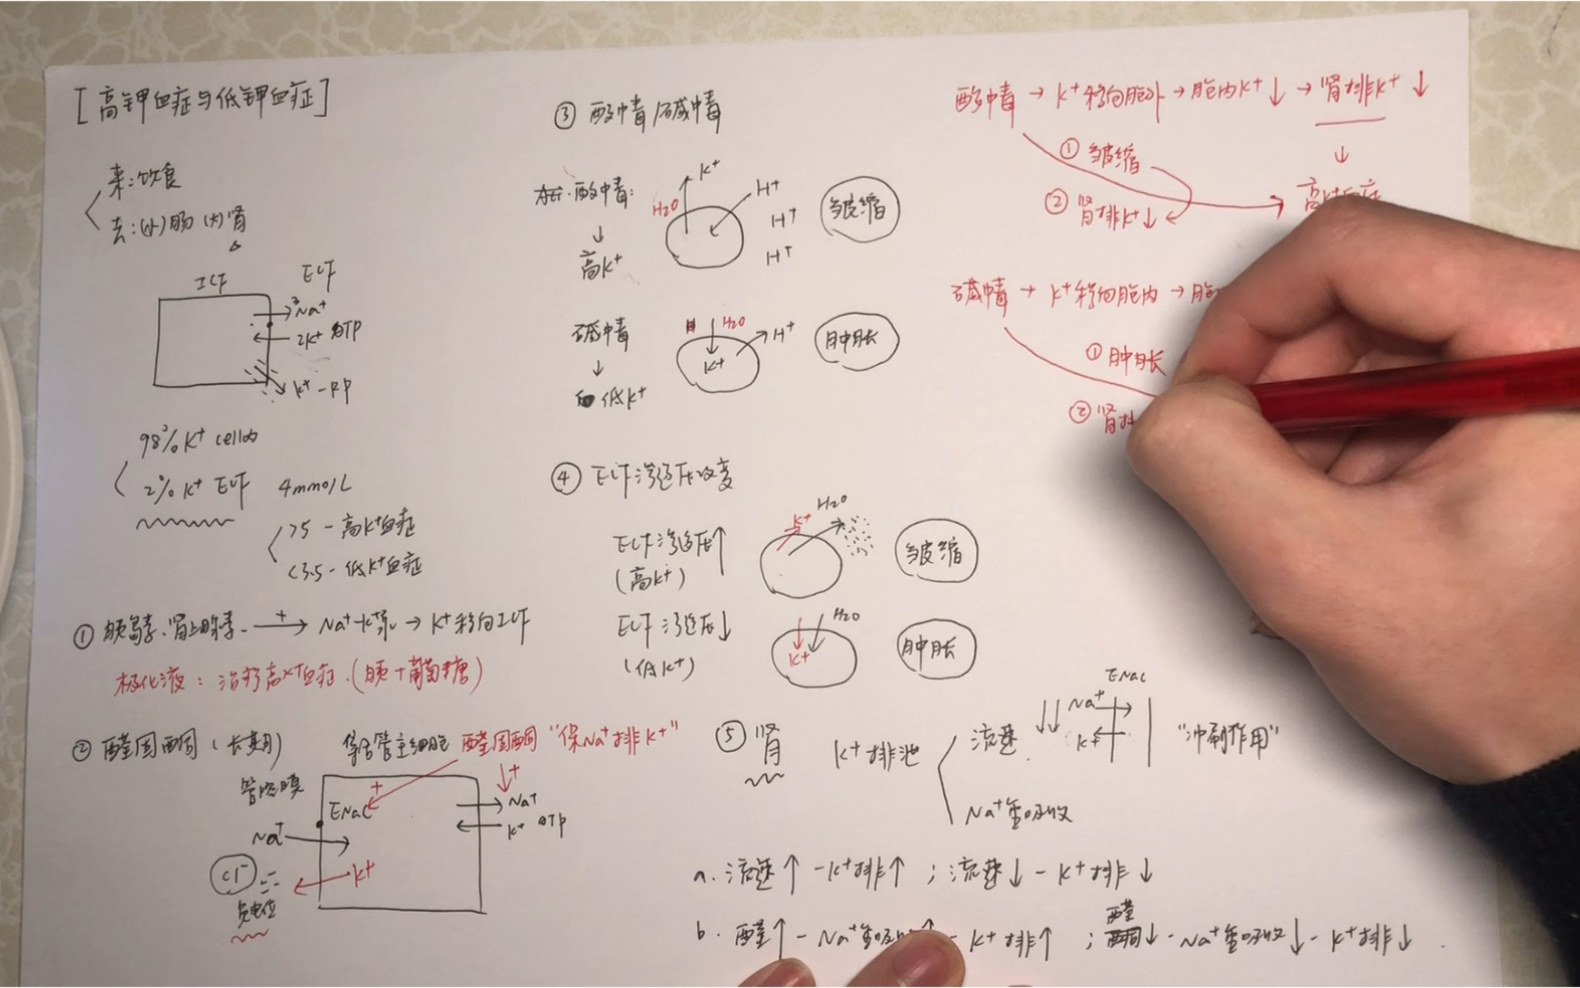 [高钾血症与低钾血症]
来:饮食
去:(外)肠 (内)肾
ICF
ECF
3Na+
2K+ ATP
K+-RP
98% K+ cell内
2% K+ ECF 4mmol/L
>5-高K+血症
<3.5-低K+血症
① 胰岛素、肾上腺素 + → Na+-K+泵 → K+移向ICF
极化液:治疗高K+血症.(胰+葡萄糖)
② 醛固酮(长期)
集合管主细胞 醛固酮 "保Na+排K+"
管腔膜
ENaC
+
+
Na+
Na+
K+ ATP
Cl-
K+
负电位
③ 酸中毒/碱中毒
酸中毒:
↓
高K+
H2O
K+
H+
H+
H+
皱缩
碱中毒
↓
低K+
H2O
K+
H+
肿胀
④ ECF渗透压改变
ECF渗透压↑
(高K+)
K+
H2O
皱缩
ECF渗透压↓
(低K+)
K+
H2O
肿胀
⑤ 肾
K+排泄
流速
Na+
K+
ENaC
"冲刷作用"
Na+重吸收
a. 流速↑-K+排↑;流速↓-K+排↓
b. 醛↑-Na+重吸收↑-K+排↑;醛酮↓-Na+重吸收↓-K+排↓.
酸中毒 → K+移向胞外 → 胞内K+↓ → 肾排K+↓
① 皱缩
② 肾排K+↓
↓
碱中毒 → K+移向胞内 →
① 肿胀
② 肾